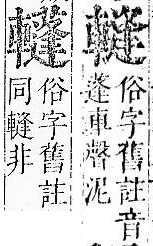 俗字舊註音
蓬車磬泥
俗字舊註
同非